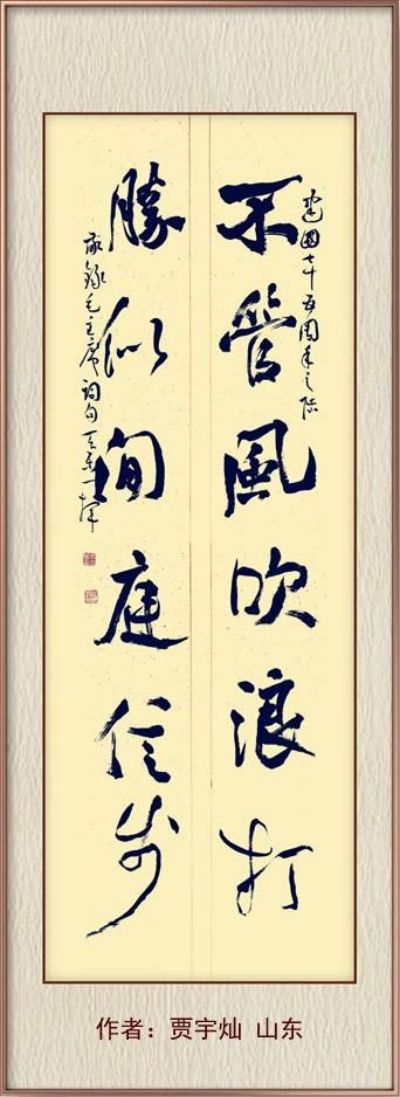 建國七十五周年之际
不管風吹浪打
勝似閒庭信步
敬錄毛主席詞句
作者：贾宇灿 山东